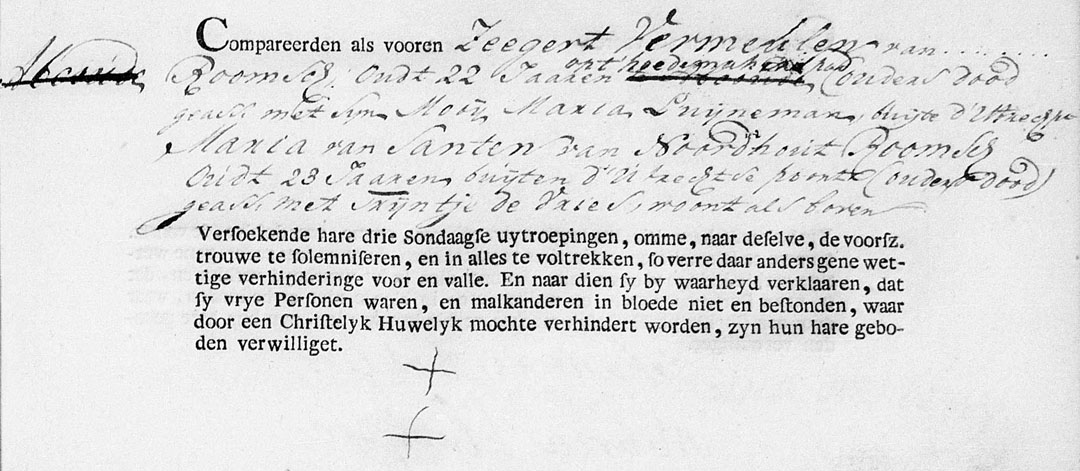 Compareerden als vooren Zeegert Vermeulen van ........
Abcoude Roomsch Oudt 22 Jaaren opt hoedemakerspad (ouders dood
geass met syn Mooij Maria Luijneman, buijte d'Utrechpo
Maria van Santen van Noordhout Roomsch
Oudt 23 Jaaren buijten d'Utrechtse poort (ouders dood)
geass met Trijntje de Vries, woont als boven
Versoekende hare drie Sondaagse uytroepingen, omme, naar deselve, de voorsz.
trouwe te solemniseren, en in alles te voltrekken, so verre daar anders gene wet-
tige verhinderinge voor en valle. En naar dien sy by waarheyd verklaaren, dat
sy vrye Personen waren, en malkanderen in bloede niet en bestonden, waar
door een Christelyk Huwelyk mochte verhindert worden, zyn hun hare gebo-
den verwilliget.